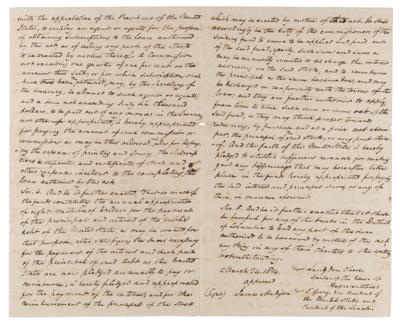 with the approbation of the President of the United
States, to employ an agent or agents for the purpose
of obtaining subscriptions to the loan authorised
by this act or of selling any part of the stock
to be created by virtue thereof; a commission
not exceeding one quarter of one per cent on the
amount thus sold, or for which subscriptions shall
have thus been obtained, may, by the Secretary of
the treasury, be allowed to such agents or agents;
and a sum not exceeding sixty six thousand
dollars, to be paid out of any monies in the treasury
not otherwise appropriated, is hereby appropriated
for paying the amount of such commission or
commissions as may be thus allowed, also for defray-
ing the expense of printing and issuing the subscrip-
tions certificates and certificates of stock and
other expences incident to the completing the
loan authorised by this act
Sec. 6. And be it further enacted, That so much of
the funds constituting the annual appropriation
of eight millions of dollars for the payment
of the principal and interest of the public
debt of the United States, as may be wanted for
that purpose, after satisfying the sums necessary
for the payment of the interest and such part
of the principal of said debt as the United
States are now pledged annually to pay or
reimburse, is hereby pledged and appropriated
for the payment of the interest and for the
reimbursement of the principal of the stock
which may be created by virtue of this act. It shall
accordingly be the duty of the commissioners of the
sinking fund to cause to be applied and paid out
of the said fund, yearly, such sum and sums as
may be annually wanted to discharge the interest
accruing on the said stock, and to reimburse
the principal as the same become due, and may
be discharged in conformity with the terms of the
loan; and they are further authorised to apply,
from time to time such sum or sums out of the
said fund, as they may think proper towards
redeeming by purchase and at a price not above
par the principal of said stock, or any part there-
of. And the faith of the United States is hereby
pledged to establish sufficient revenues for making
good any deficiency that may hereafter take
place in the funds hereby appropriated for paying
the said interest and principal sums, or any of
them, in manner aforesaid.
Sec. 7. And be it further enacted, that it shall
be lawful for any of the banks in the District
of Columbia to lend any part of the sum
authorised to be borrowed by virtue of this act,
any thing in any of their charters to the contrary
notwithstanding.
March 24, 1814
approved
(signed) James Madison
Langdon Cheves
Speaker of the house of
Representatives
E. Gerry, Vice President of
the United States and
President of the Senate.